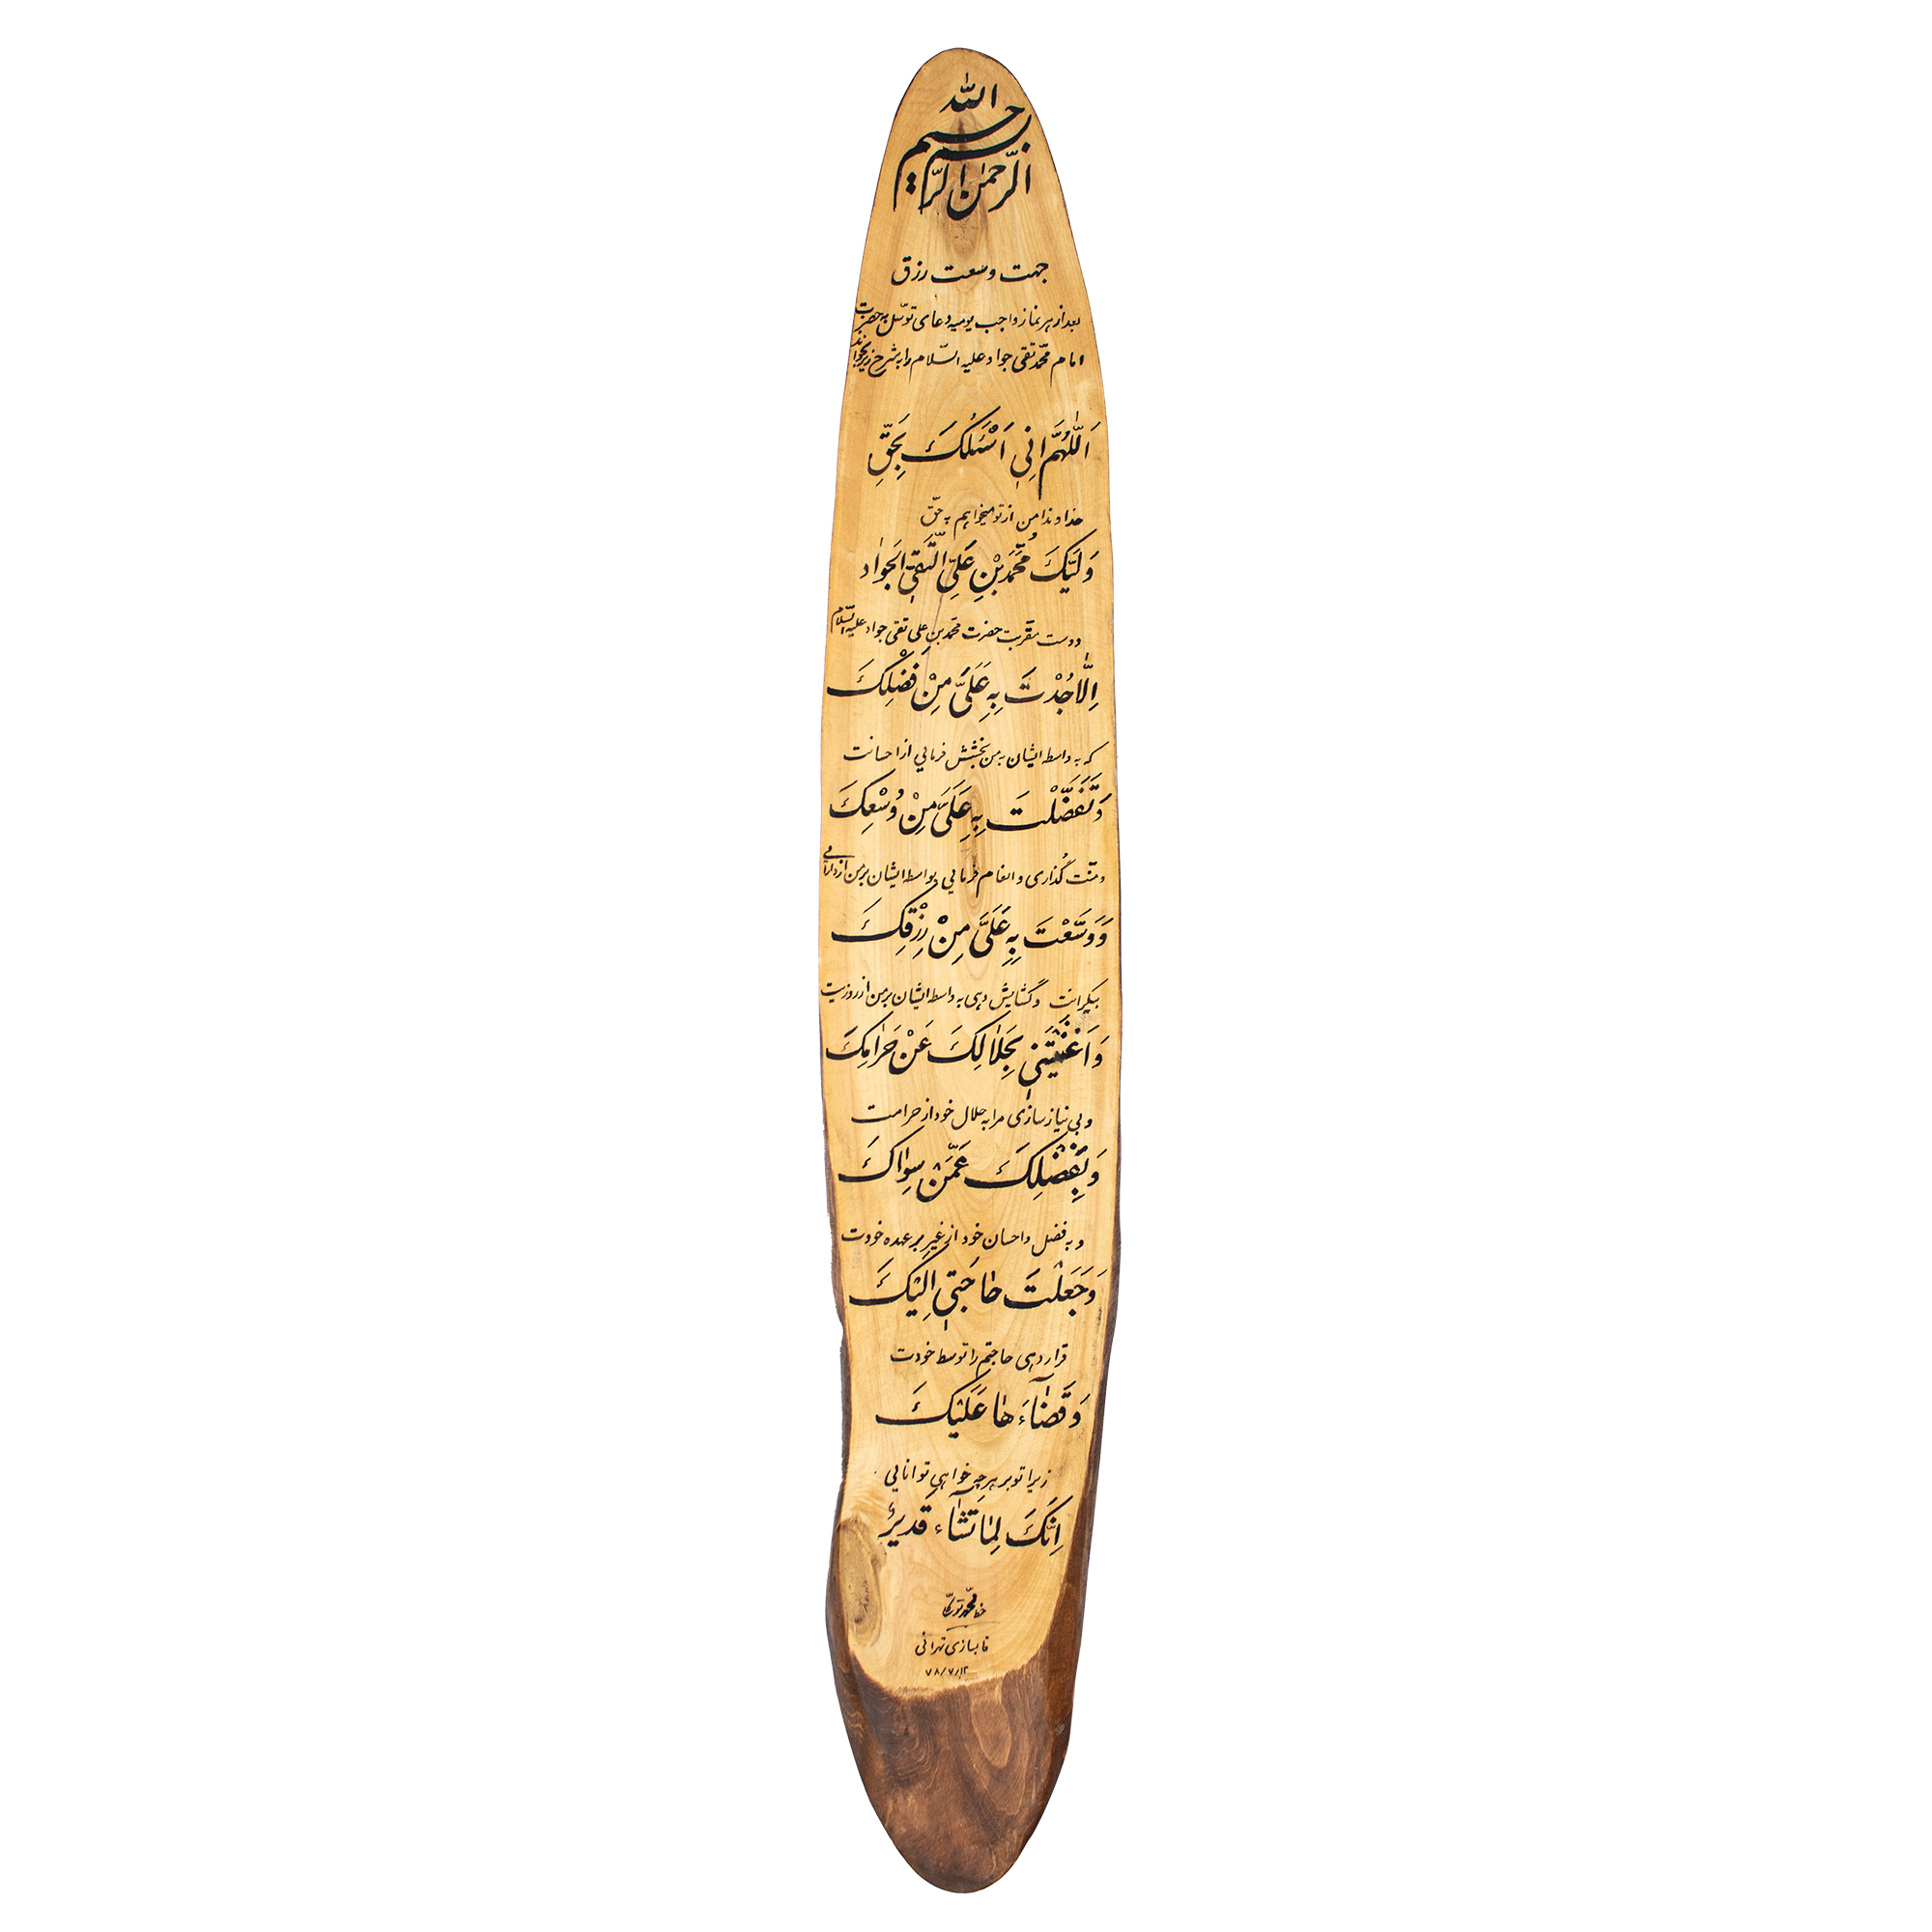 بسم الله
الرّحمٰن الرّحیم
جهت وسعت رزق
بعد از هر نماز واجب یومیه دعای توسّل به حضرت
امام محمّد تقی جواد علیه السّلام را به شرح زیر بخواند
اَللّٰهُمَّ اِنِّی اَسْئَلُکَ بِحَقِّ
خداوندا من از تو میخواهم به حقّ
وَلِیِّکَ مُحَمَّدِ بْنِ عَلِیٍّ التَّقِیِّ الجَوٰاد
دوست مقربت حضرت محمّد بن علی تقی جواد علیه السّلام
اِلّٰا جُدْتَ بِهِ عَلَیَّ مِنْ فَضْلِکَ
که به واسطه ایشان به من بخشش فرمایی از احسانت
وَ تَفَضَّلْتَ بِهِ عَلَیَّ مِنْ وُسْعِکَ
و منّت گذاری و انعام فرمایی بواسطه ایشان بر من از دارایی
وَ وَسَّعْتَ بِهِ عَلَیَّ مِنْ رِزْقِکَ
بیکرانت و گشایش دهی به واسطه ایشان بر من از روزیت
وَ اَغْنَیْتَنِی بِحَلاٰلِکَ عَنْ حَرٰامِکَ
و بی نیاز سازی مرا به حلال خود از حرامت
وَ بِفَضْلِکَ عَمَّنْ سِوٰاکَ
و به فضل و احسان خود از غیر بر عهده خودت
وَ جَعَلْتَ حٰاجَتِی اِلَیْکَ
قرار دهی حاجتم را توسط خودت
وَ قَضٰاءَ هٰا عَلَیْکَ
زیرا تو بر هر چه خواهی توانایی
اِنَّکَ لِمٰا تَشٰاءُ قَدیرٌ
خط محمّد
قابسازی تهرانی
۷۸/۷/۱۲